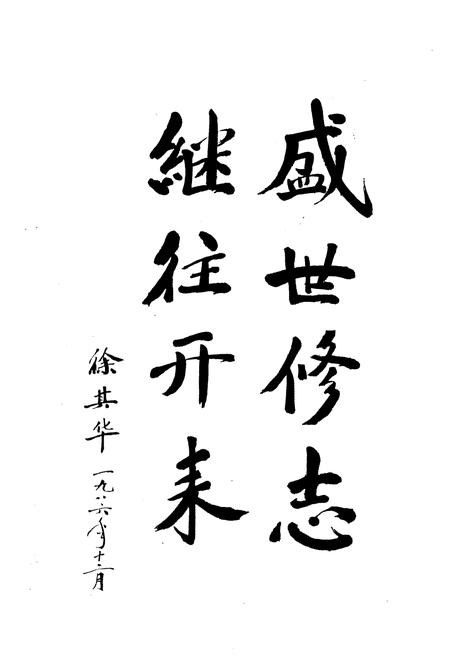 盛世修志
继往开来
徐其华 一九八六年十二月